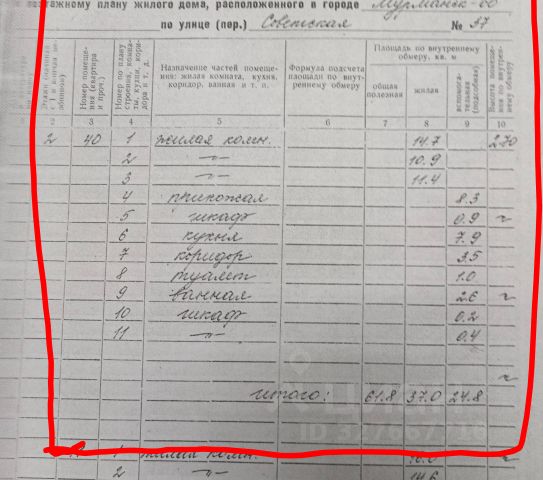 поэтажному плану жилого дома, расположенного в городе Мурманск-60
по улице (пер.) Советская № 37
Номер помещения (квартира и проч.)
Номер по плану строения, комнаты, кухни, коридора и т. д.
Назначение частей помещения: жилая комната, кухня, коридор, ванная и т. п.
Формула подсчета площади по внутреннему обмеру
Площадь по внутреннему обмеру, кв. м
общая полезная
жилая
вспомогательная (подсобная)
Высота помещения по внутреннему обмеру
2 3 4 5 6 7 8 9 10
2 40 1 жилая комн. 14.7 2.70
2 —"— 10.9
3 —"— 11.4
4 прихожая 8.3
5 шкаф 0.9
6 кухня 7.9
7 коридор 3.5
8 туалет 1.0
9 ванная 2.6
10 шкаф 0.2
11 —"— 0.4
итого: 61.8 37.0 24.8
1 жилая комн.
2 —"— 14.6